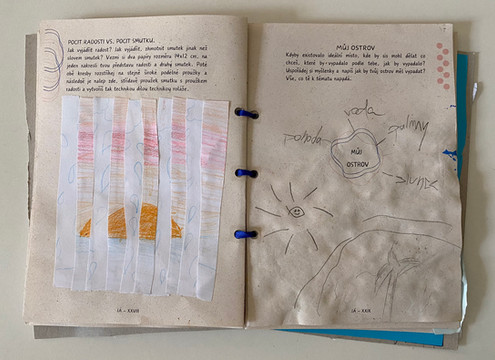 POCIT RADOSTI VS. POCIT SMUTKU.
Jak vyjádřit radost? Jak vyjádřit, zhmotnit smutek jinak než
slovem smutek? Vezmi si dva papíry rozměru 14x12 cm, na
jeden nakresli tvou představu radosti a druhý smutek. Poté
obě kresby rozstříhej na stejně široké podélné proužky a
následně je nalep zde, střídavě proužek smutku s proužkem
radosti a vytvoříš tak technikou dílou technikou roláže.
MŮJ OSTROV
Kdyby existovalo ideální místo, kde by sis mohl dělat co
chceš, které by vypadalo podle tebe, jak by vypadalo?
Uspořádej si myšlenky a napiš jak by tvůj ostrov měl vypadat?
Vše, co tě k tématu napadá.
voda
palmy
MŮJ
OSTROV
slunce
JÁ - XXVIII
JÁ - XXIX